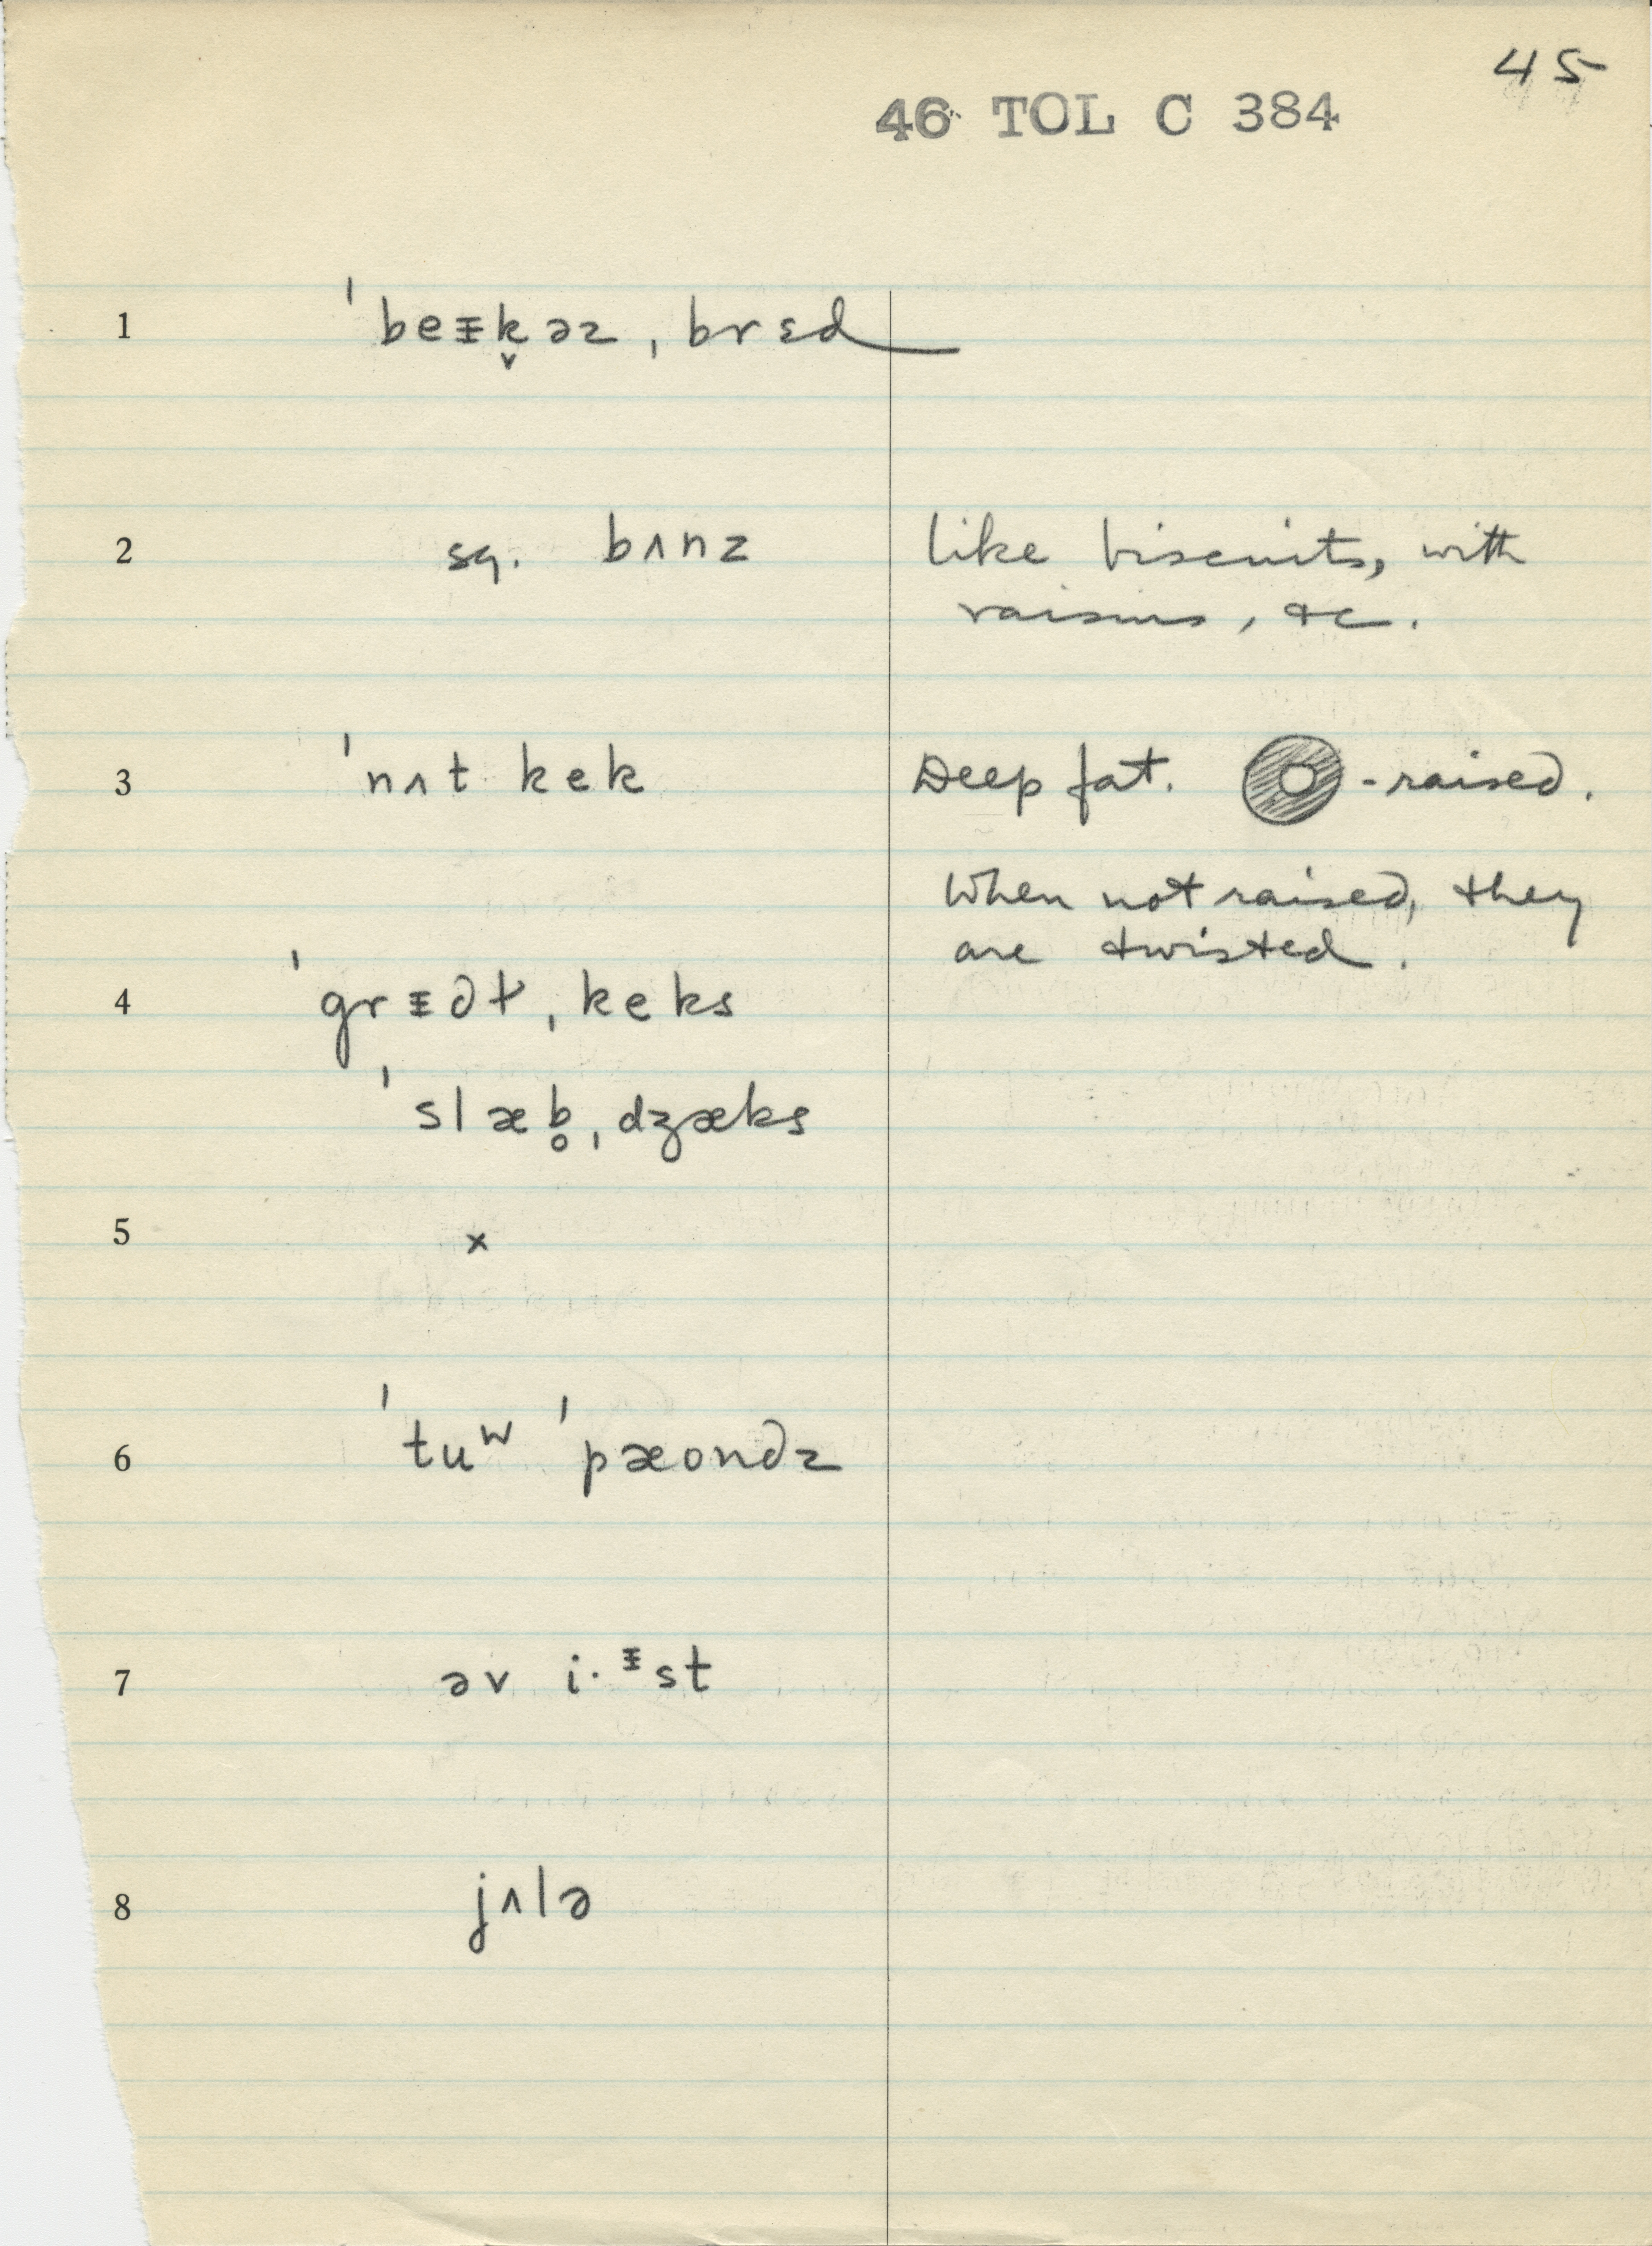 45
46 TOL C 384
1 ˈbeᵻk̬əz ˌbrɛd
2 sq. bʌnz like biscuits, with
raisins, &c.
3 ˈnʌt kek Deep fat. -raised.
When not raised, they
are twisted.
4 ˈgrᵻdɫ ˌkeks
ˈslæb̥ ˌdʒæks
5 x
6 ˈtuʷ ˈpæondz
7 əv i·ᵻst
8 jʌlə